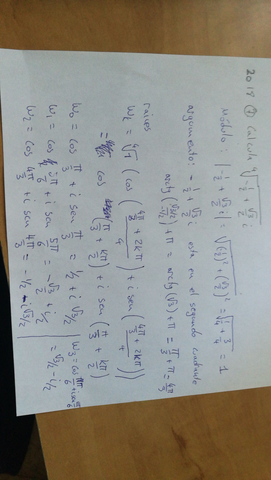 2018 ① Calcula ⁴√(-1/2 + √3/2 i)
Módulo: |-1/2 + √3/2 i| = √((-1/2)² + (√3/2)²) = √(1/4 + 3/4) = 1
argumento: -1/2 + √3/2 i está en el segundo cuadrante
arctg((√3/2)/(-1/2)) + π = arctg(√3) + π = π/3 + π = 4π/3
raices
W_k = ⁴√1 (cos((4π/3 + 2kπ)/4) + i sen((4π/3 + 2kπ)/4))
= cos(π/3 + kπ/2) + i sen(π/3 + kπ/2)
W₀ = cos π/3 + i sen π/3 = 1/2 + i √3/2
W₁ = cos 5π/6 + i sen 5π/6 = -√3/2 + i/2
W₂ = cos 4π/3 + i sen 4π/3 = -1/2 - i√3/2
W₃ = cos
= √3/2 - i/2